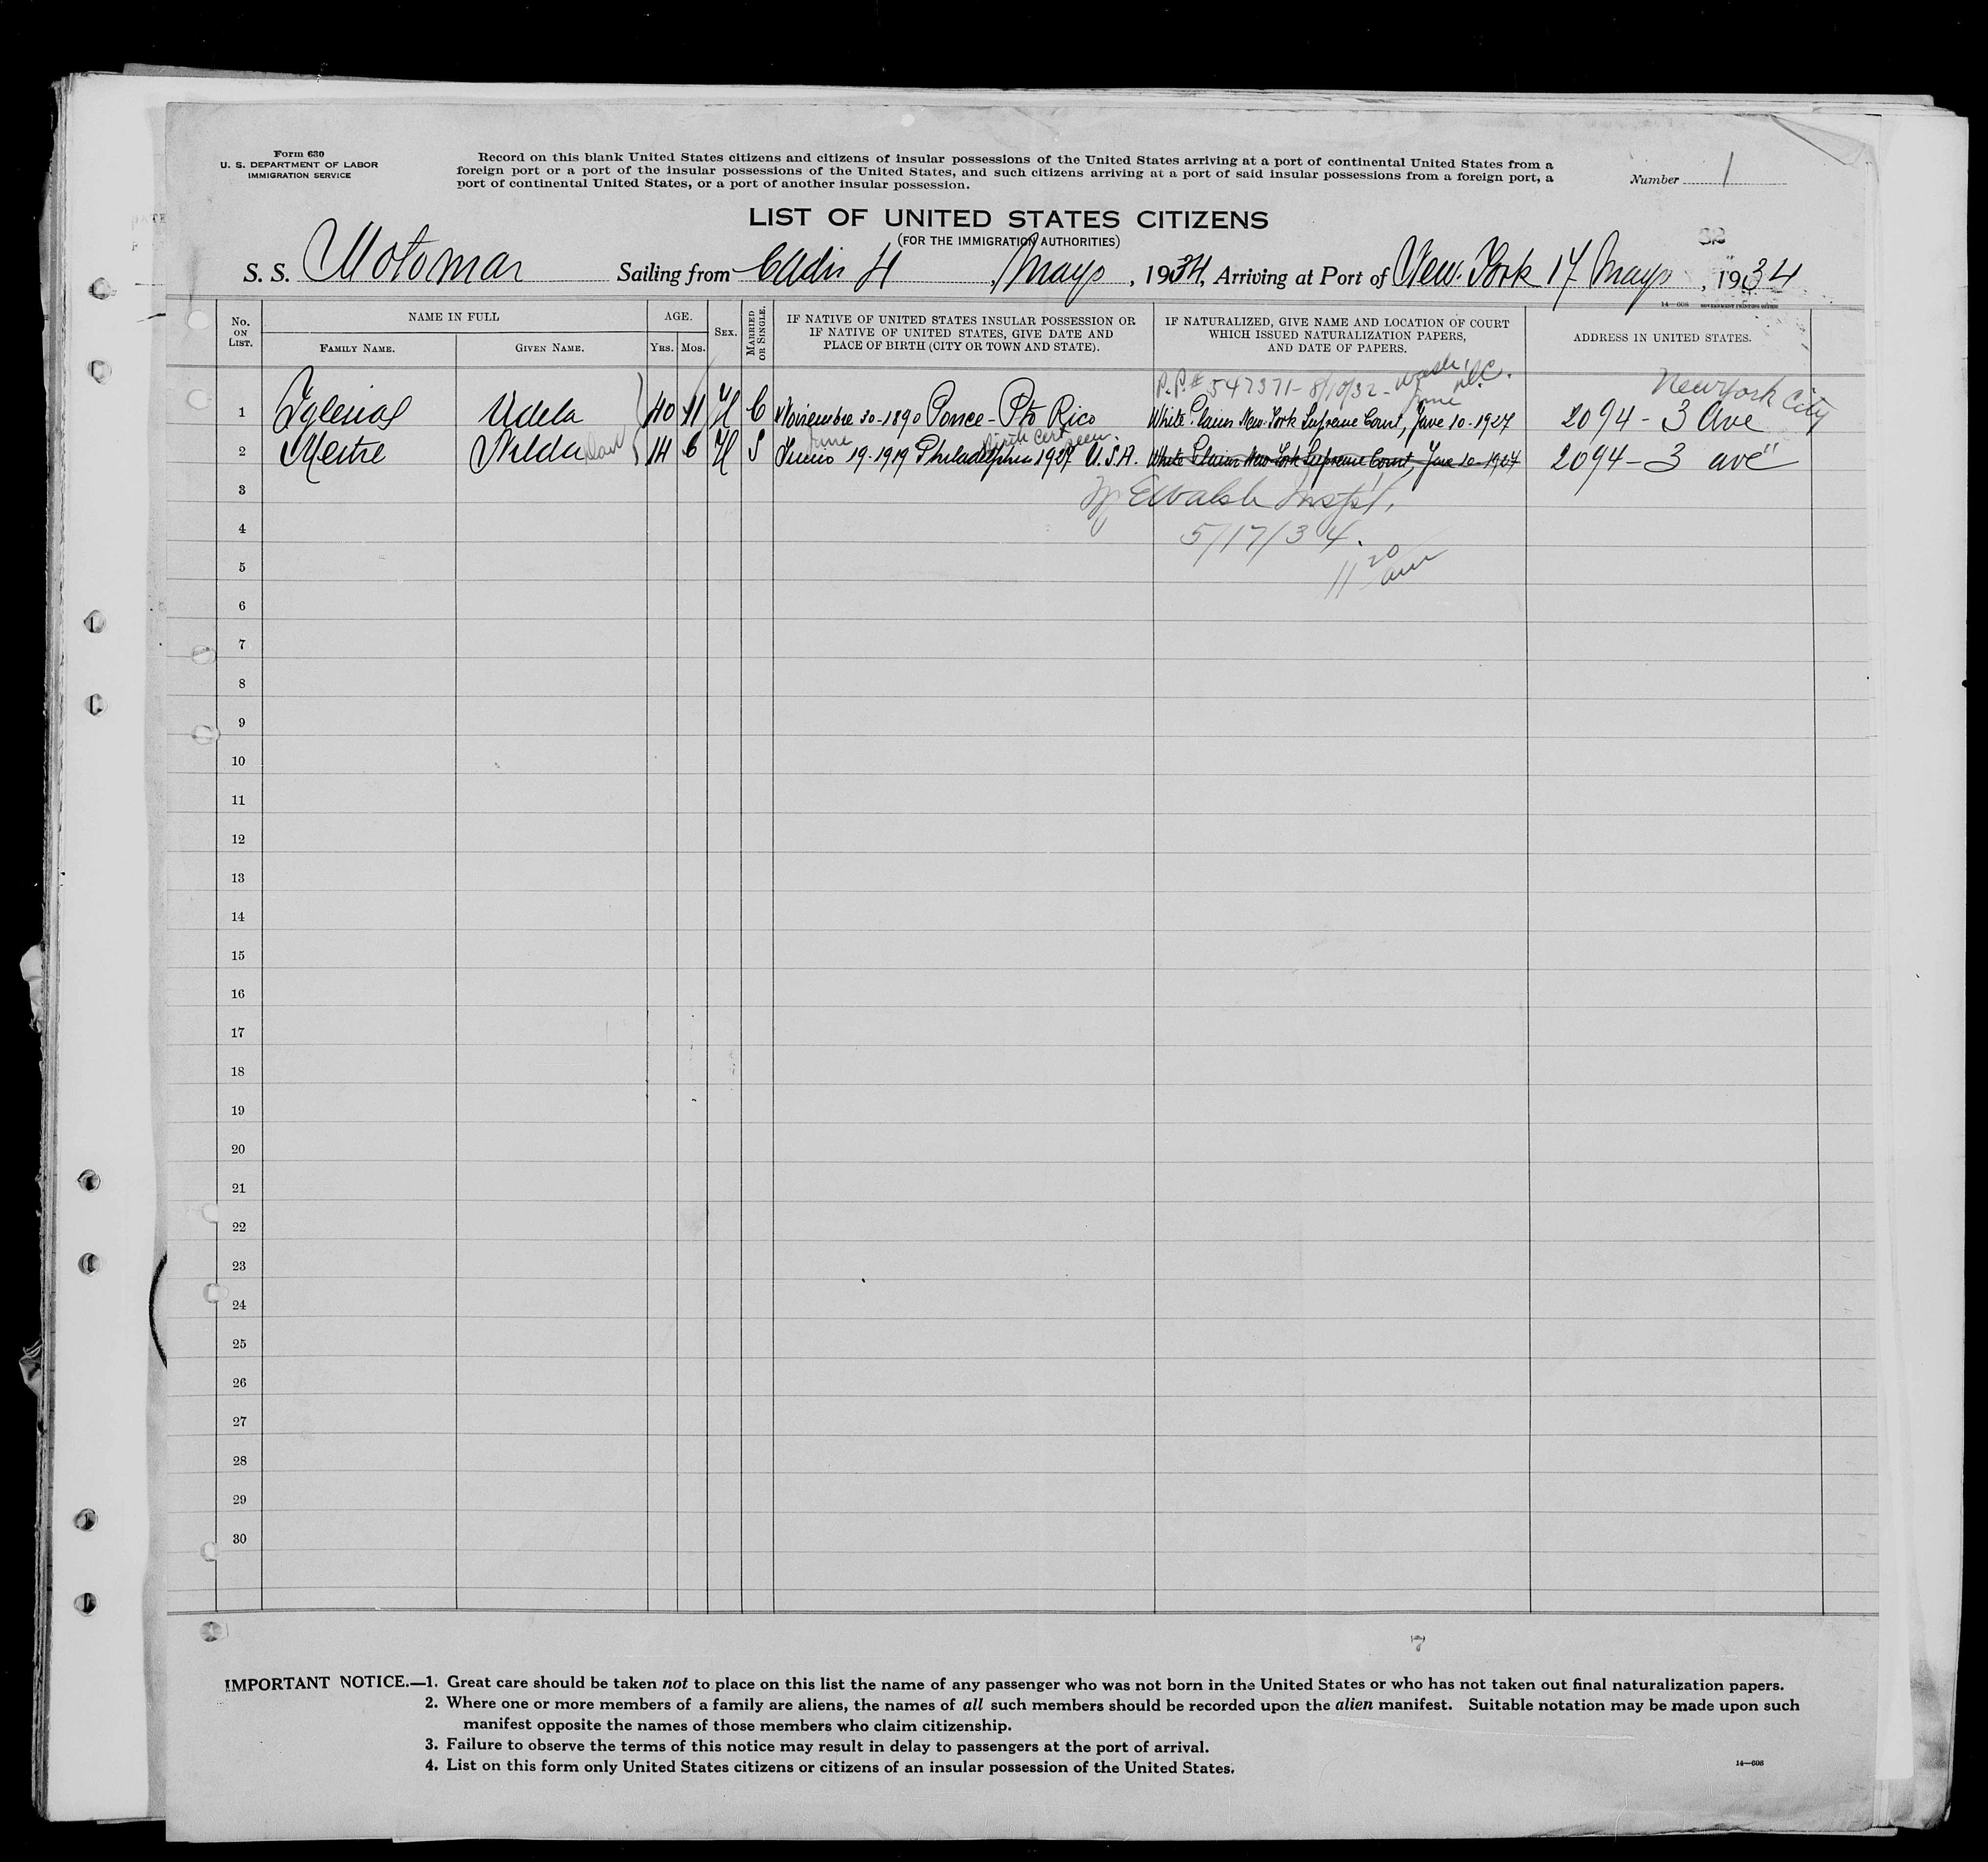 Form 630
U. S. DEPARTMENT OF LABOR
IMMIGRATION SERVICE
Record on this blank United States citizens and citizens of insular possessions of the United States arriving at a port of continental United States from a
foreign port or a port of the insular possessions of the United States, and such citizens arriving at a port of said insular possessions from a foreign port, a
port of continental United States, or a port of another insular possession.
Number 1
LIST OF UNITED STATES CITIZENS
(FOR THE IMMIGRATION AUTHORITIES)
S. S. Motomar Sailing from Cadiz 4, Mayo, 1934, Arriving at Port of New-York 17 Mayo, 1934
14—608 GOVERNMENT PRINTING OFFICE
No. ON LIST.
NAME IN FULL
FAMILY NAME.
GIVEN NAME.
AGE.
YRS.
MOS.
SEX.
MARRIED OR SINGLE.
IF NATIVE OF UNITED STATES INSULAR POSSESSION OR
IF NATIVE OF UNITED STATES, GIVE DATE AND
PLACE OF BIRTH (CITY OR TOWN AND STATE).
IF NATURALIZED, GIVE NAME AND LOCATION OF COURT
WHICH ISSUED NATURALIZATION PAPERS,
AND DATE OF PAPERS.
ADDRESS IN UNITED STATES.
P.P.# 547371-8/10/32-Wash, D.C.
New York City
June
1 Iglesias Adela 40 11 H C Noviembre 30-1890 Ponce-Pto Rico White Plains New-York Supreme Court, June 10-1927 2094-3 Ave
June
Birth Cert seen.
2 Mestre Nelda Dau 14 6 H S Junio 19-1919 Philadelphia 1927 U.S.A. White Plains New-York Supreme Court, June 10-1927 2094-3 ave "
3 Walsh Inspt,
4 5/17/34.
5 11 20 am
6
7
8
9
10
11
12
13
14
15
16
17
18
19
20
21
22
23
24
25
26
27
28
29
30
7
IMPORTANT NOTICE.—1. Great care should be taken not to place on this list the name of any passenger who was not born in the United States or who has not taken out final naturalization papers.
2. Where one or more members of a family are aliens, the names of all such members should be recorded upon the alien manifest. Suitable notation may be made upon such
manifest opposite the names of those members who claim citizenship.
3. Failure to observe the terms of this notice may result in delay to passengers at the port of arrival.
4. List on this form only United States citizens or citizens of an insular possession of the United States.
14—608